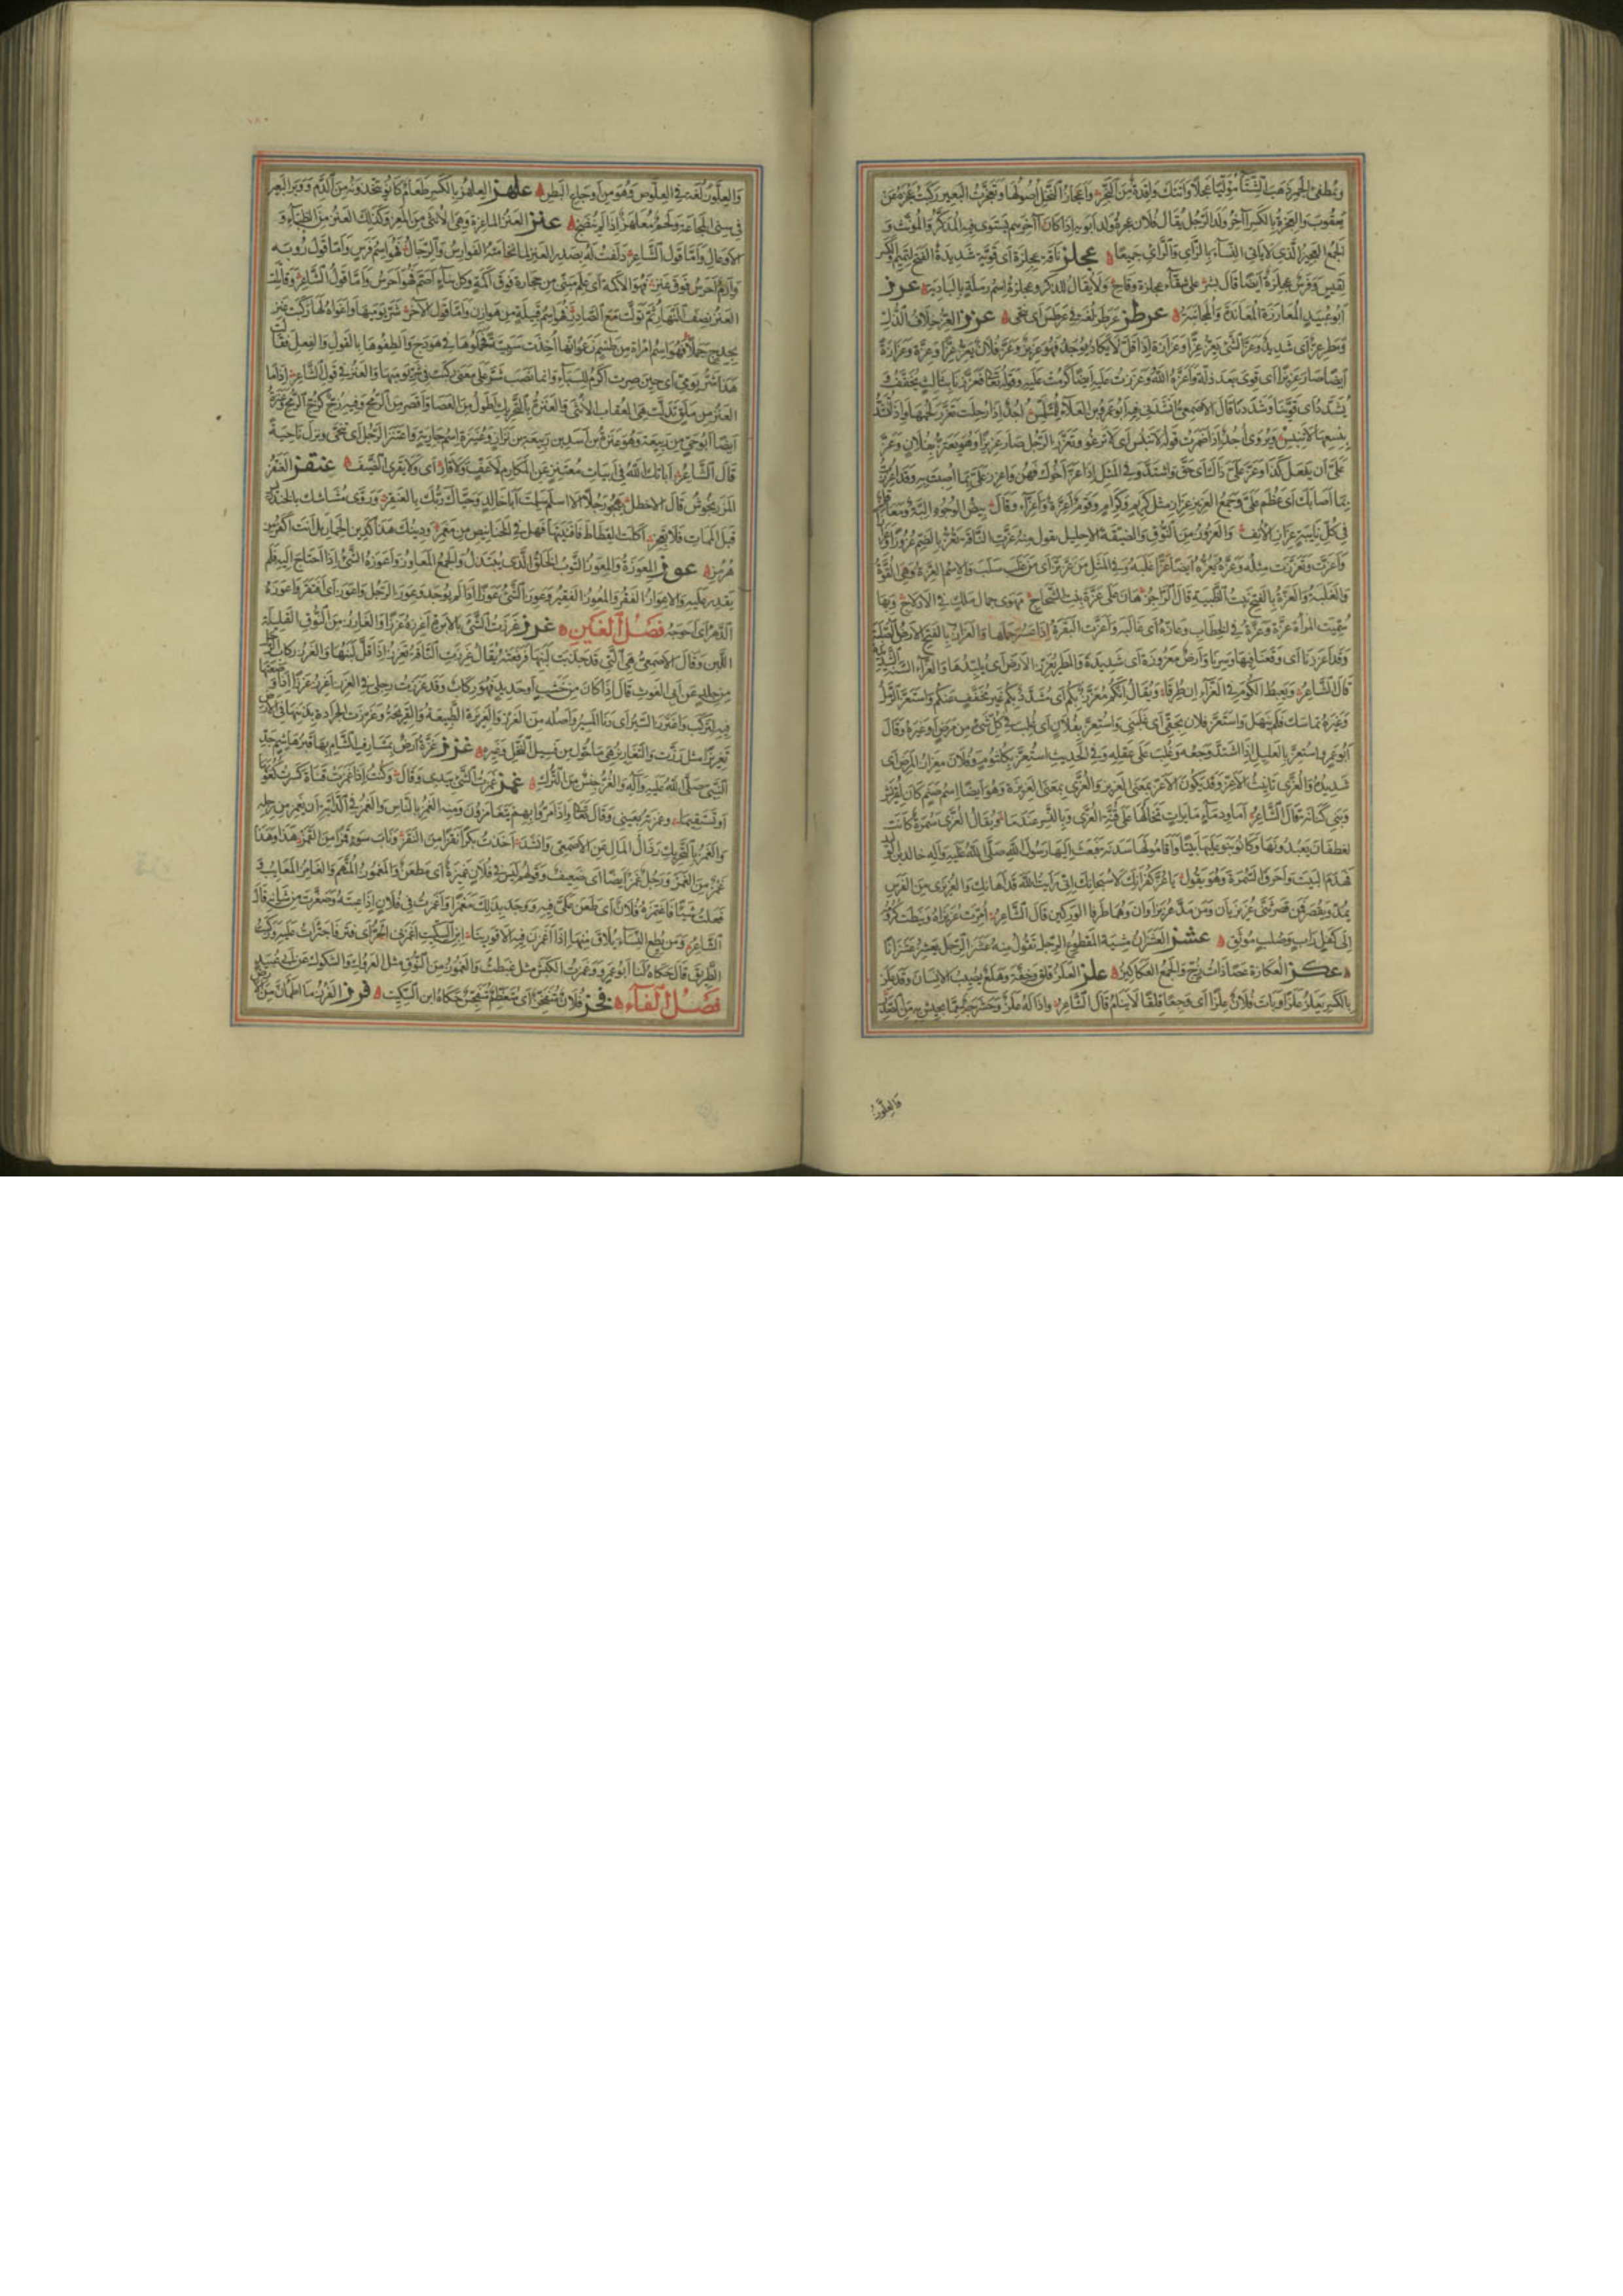 ويطفئ الجمر ذهب الشتاء موليا عجلا واتتك وافدة من النجر واعجاز النخل اصولها وتعجزت البعير ركبت عجزه عن
يعقوب والعجزة بالكسر آخر ولد الرجل يقال فلان عجزة ولد ابويه اذا كان آخرهم يستوى فيه المذكر والمؤنث و
الجمع العجيز الذي لا ياتى النساء بالزاي والراي جميعا عجلز ناقة عجلزة اى قوية شديدة الفتح لتميم والكسر
لقيس وفرس عجلزة ايضا قال بشر على شقاء عجلزة وقاح ولا يقال للذكر وعجلزة اسم رملة بالبادية عرز
ابو عبيد المعارزة المعاندة والمجانبة عرطز عرطز لغة فى عرطس اى تنحى عزز العز خلاف الذل
ومطر عز اى شديد وعز الشئ يعز عزا وعزازة اذا قل لا يكاد يوجد فهو عزيز وعز فلان يعز عزا وعزة وعزازة
ايضا صار عزيزا اى قوى بعد ذلة واعزه الله وعززت عليه ايضا كرمت عليه وقوله تعالى فعززنا بثالث يخفف و
يشدد اى قوينا وشددنا قال الاصمعي انشدني فيه ابو عمرو بن العلاء للمتلمس اجد اذا رحلت تعزز لحمها واذا تشد
بنسعها لا تنبس ويروى اجد اذا ضمرت قوله لا تنبس اى لا ترغو وتعزز الرجل صار عزيزا وهو يعتز بفلان وعز
على ان يفعل كذا وعز على ذاك اى حق واشتد وفى المثل اذا عز اخوك فهن واعزز على بما اصبت به وقد اعززت
بما اصابك اى عظم على وجمع العزيز عزاز مثل كريم وكرام وقوم اعزة واعزاء وقال بيض الوجوه البة ومعاقل
فى كل نائبة عزاز الانف والعزوز من النوق الضيقة الاحليل تقول منه عزت الناقة تعز بالضم عزوزا
واعزت وتعززت مثله وعزه يعزه ايضا عزا غلبه وفى المثل من عز بز اى من غلب سلب والاسم العزة وهى القوة
والغلبة والعزة بالفتح بنت الظبية قال الراجز هان على عزة بنت الشحاج مهوى جمال ملك فى الادلاج وبها
سميت المرأة عزة وعزه فى الخطاب وعازه اى غالبه واعزت البقرة اذا عسر حملها والعزاز بالفتح الارض الصلبة
وقد اعززنا اى وقعنا فيها وسرنا وارض معزوزة اى شديدة والمطر يعزز الارض اى يلبدها والعزاء السنة الشديدة
قال الشاعر ويعبط الكوم فى العزاء ان طرقا ويقال انكم معزز بكم اى مشدد بكم غير مخفف عنكم واستعز الرمل
وغيره تماسك فلم ينهل واستعز فلان بحقى اى غلبنى واستعز بفلان اى غلب فى كل شئ من مرض او غيره وقال
ابو عمرو استعز بالعليل اذا اشتد وجعه وغلب على عقله وفى الحديث استعز بكلثوم وفلان معزاز المرض اى
شديده والعزى تانيث الاعز وقد يكون الاعز بمعنى العزيز والعزى بمعنى العزيزة وهو ايضا اسم صنم كان لقريش
وبنى كنانة قال الشاعر اما ودماء مايرات تخالها على قنة العزى وبالنسر عندما ويقال العزى سمرة كانت
لغطفان يعبدونها وكانوا بنوا عليها بيتا واقاموا لها سدنة فبعث اليها رسول الله صلى الله عليه وآله خالد بن الوليد
فهدم البيت واحرق السمرة وهو يقول يا عز كفرانك لا سبحانك انى رايت الله قد اهانك والعزيزى من الفرس
يمد ويقصر فمن قصر ثنى عزيزيان ومن مد عزيزاوان وهما طرفا الوركين قال الشاعر امرت عزيزاه ونيطت كرومه
الى كفل راب وصلب موثق عشز العشزان مشية المقطوع الرجل تقول منه عشز الرجل يعشز عشزانا
عكز العكازة عصا ذات زج والجمع العكاكيز علز العلز قلق وخفة وهلع يصيب الانسان وقد علز
بالكسر يعلز علزا وبات فلان علزا اى وجعا قلقا لا ينام قال الشاعر واذا له علز وحشرجة مما يجيش به من الصدر
والعلوز
والعلوز لغة فى العلوص وهو من اوجاع البطن علهز العلهز بالكسر طعام كانوا يتخذونه من الدم ووبر البعير
فى سنى المجاعة ولحم معلهز اذا لم ينضج عنز العنز الماعزة وهى الانثى من المعز وكذلك العنز من الظباء و
الاوعال واما قول الشاعر دلفت له بصدر العنز لما تحامته الفوارس والرجال فهو اسم فرس واما قول رؤبة
وارم اخرس فوق عنز فهو الاكمة اى علم مبنى من حجارة فوق اكمة وكل بناء اصم فهو اخرس واما قول الشاعر وقاتلت
العنز نصف النهار ثم تولت مع الصادر فهو اسم قبيلة من هوازن واما قول الآخر شر يوميها واغواه لها ركبت عنز
بحدج جملا فهو اسم امراة من طسم زعموا انها اخذت سبية فحملوها فى هودج والطفوها بالقول والفعل فقالت
هذا شر يومى اى حين صرت اكرم للسباء وانما نصب شر على معنى ركبت فى شر يوميها والعنز فى قول الشاعر اذا ما
العنز من ملق تدلت هى العقاب الانثى والعنزة بالتحريك اطول من العصا واقصر من الرمح وفيه زج كزج الرمح وعنزة
ايضا ابو حى من ربيعة وهو عنزة بن اسد بن ربيعة بن نزار وعنيزة اسم جارية واعتنز الرجل اى تنحى ونزل ناحية
قال الشاعر اباتك الله فى ابيات معتنز عن المكارم لا عف ولا قار اى ولا يقرى الضيف عنقز العنقز
المرزنجوش قال الاخطل يهجو رجلا الا اسلم سلمت ابا خالد وحياك ربك بالعنقز وروى مشاشك بالخندريس
قبل الممات فلا تعجز اكلت القطاط فافنيتها فهل فى الخنانيص من مغمز ودينك هذا كدين الحمار بل انت اكفر من
هرمز عوز المعوزة والمعوز الثوب الخلق الذى يبتذل والجمع المعاوز واعوزه الشئ اذا احتاج اليه فلم
يقدر عليه والاعواز الفقر والمعوز الفقير وعوز الشئ عوزا اذا لم يوجد وعوز الرجل واعوز اى افتقر واعوزه
الدهر اى احوجه فصل الغين غرز غرزت الشئ بالابرة اغرزه غرزا والغارز من النوق القليلة
اللبن وقال الاصمعي هى التى قد جذبت لبنها فرفعته يقال غرزت الناقة تغرز اذا قل لبنها والغرز ركاب الرحل
من جلد عن ابى الغوث قال اذا كان من خشب او حديد فهو ركاب وقد غرزت رجلى فى الغرز اغرز غرزا اذا وضعتها
فيه لتركب واغترز السير اى دنا المسير واصله من الغرز والغريزة الطبيعة والقريحة وغرزت الجرادة بذنبها فى الارض
تغريزا مثل رزت والتغاريز هى ما حول من فسيل النخل وغيره غزز غزة ارض بمشارف الشام بها قبر هاشم جد
النبى صلى الله عليه وآله والغز جنس من الترك غمز غمزت الشئ بيدى وقال وكنت اذا غمزت قناة قوم كسرت كعوبها
او تستقيما وغمزته بعينى وقال تعالى واذا مروا بهم يتغامزون ومنه الغمز بالناس والغمز فى الدابة ان تغمز من رجله
والغمز بالتحريك رذال المال عن الاصمعى وانشد اخذت بكرا نقزا من النقز وناب سوء قمزا من القمز هذا وهذا
غمز من الغمز ورجل غمز ايضا اى ضعيف وقولهم ليس فى فلان غميزة اى مطعن والمغموز المتهم والمغامز المعايب و
فعلت شيئا فاغتمزه فلان اى طعن على فيه ووجد بذلك مغمزا واغمزت فى فلان اذا عبته وصغرت من شانه قال
الشاعر ومن يطع النساء يلاق منها اذا اغمزن فيه الاقورينا ابن السكيت اغمزنى الحر اى فتر فاجترأت عليه وركبت
الطريق قال حكاه لنا ابو عمرو وغمزت الكبش مثل غبطت والغموز من النوق مثل العروك والشكوك عن ابى عبيد
فصل الفاء فخز فلان يتفخز اى يتعظم يتفجس حكاه ابن السكيت فرز الفرز ما اطمان من الارض